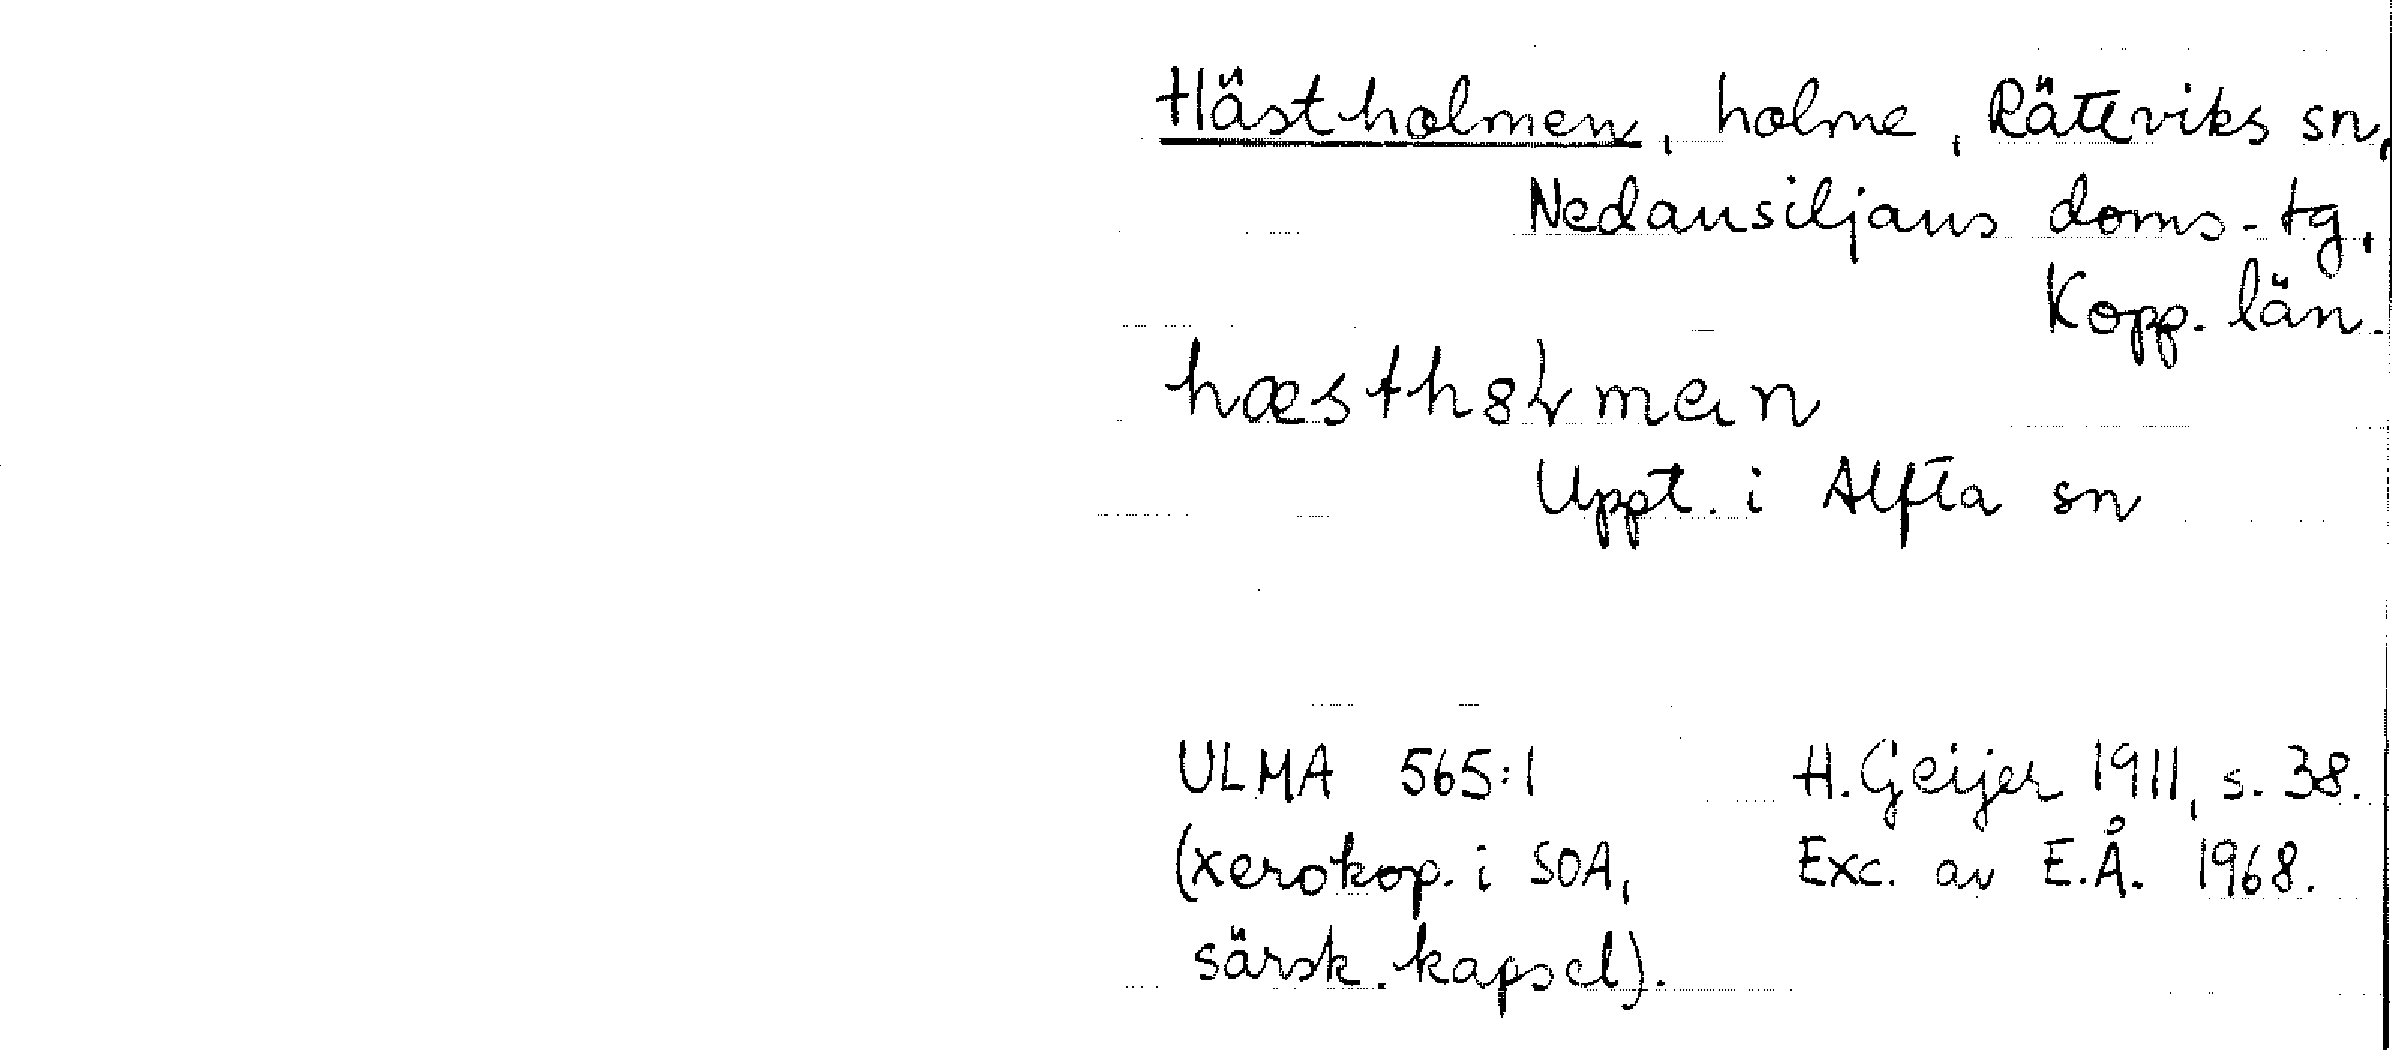 Hästholmen, holme, Rätteviks sn,
Nedansiljans doms-tg,
Kopp. län.
hæsth8ɽmen
Uppt. i Alfta sn
ULMA 565:1 H. Geijer 1911, s. 38.
(xerokop. i SOA, Exc. av E.Å. 1968.
särsk. kapsel).